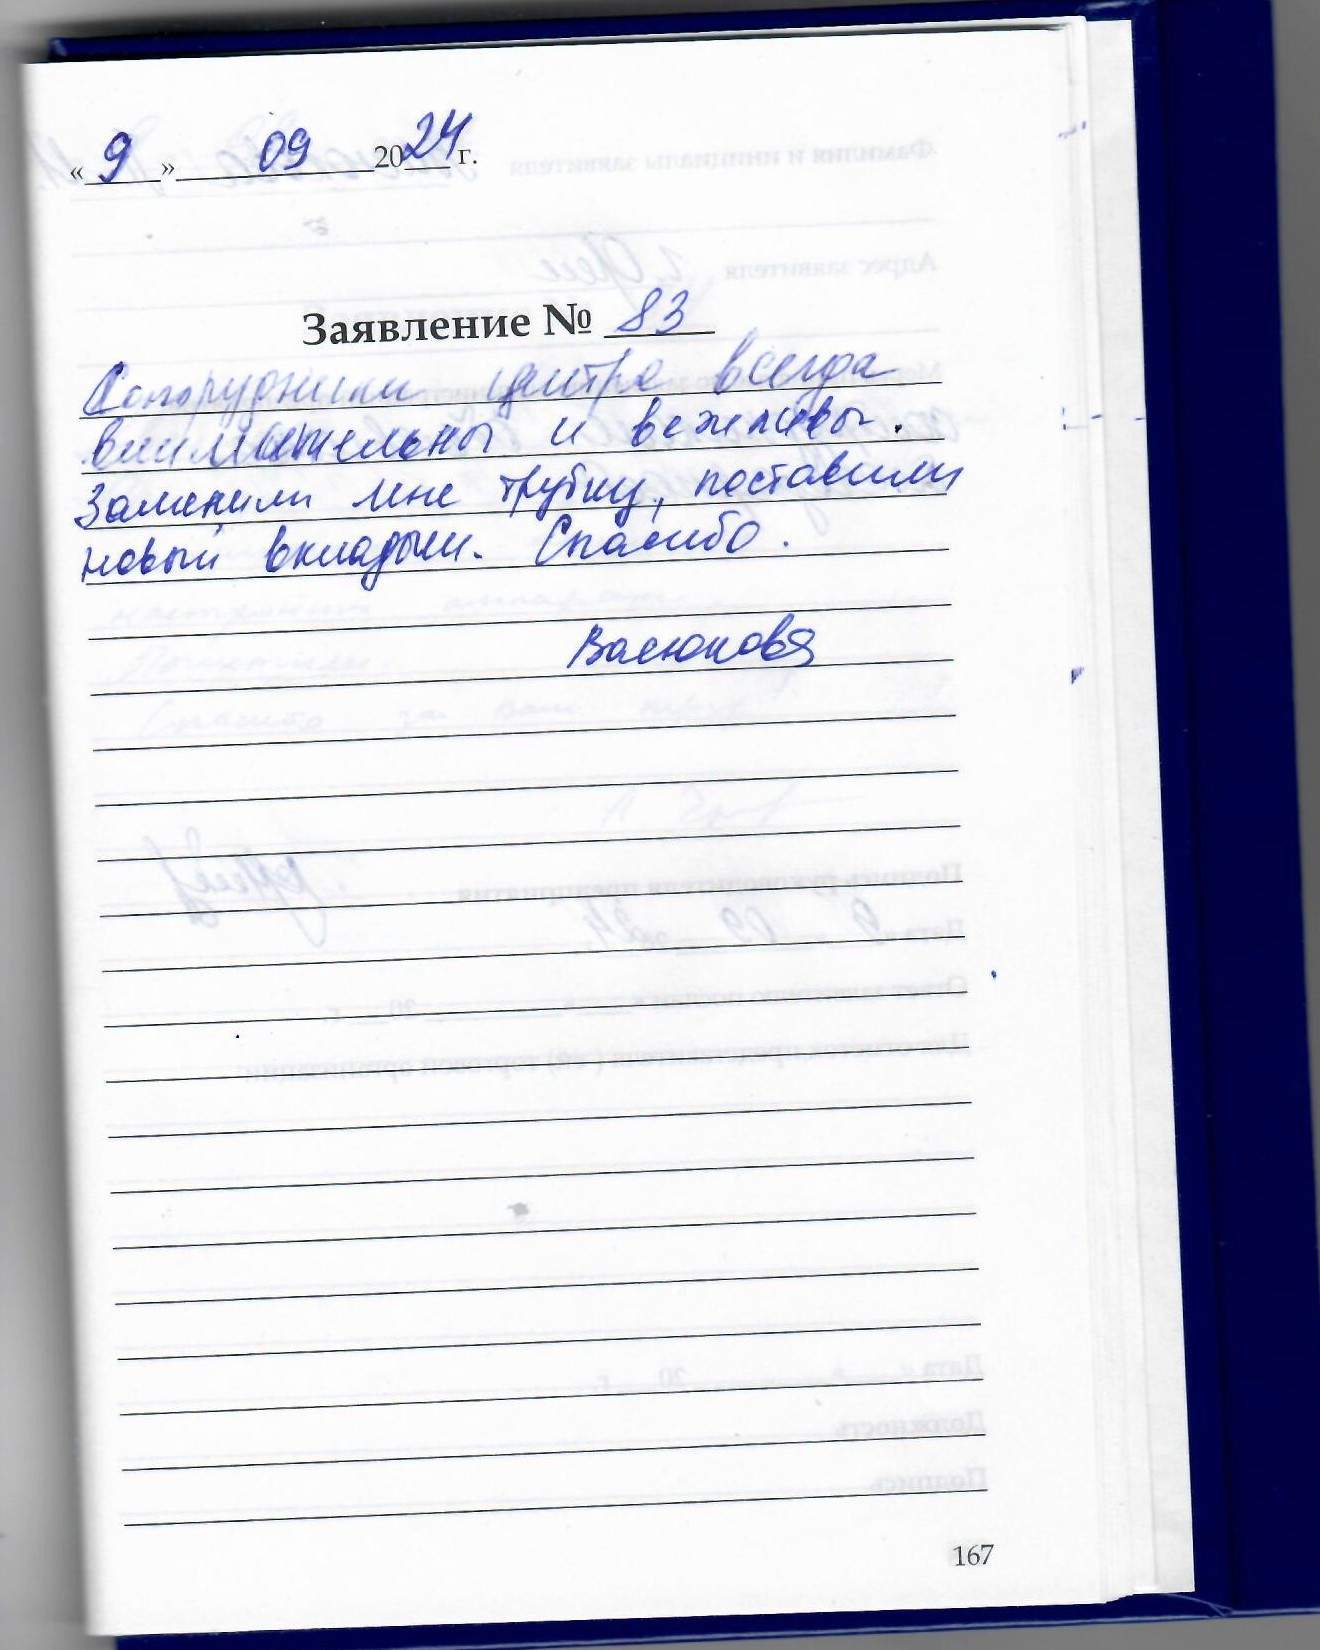 «9» 09 2024 г.
Заявление № 83
Сотрудники центра всегда
внимательны и вежливы.
Заменили мне трубку, поставили
новый вкладыш. Спасибо.
Васюкова
167